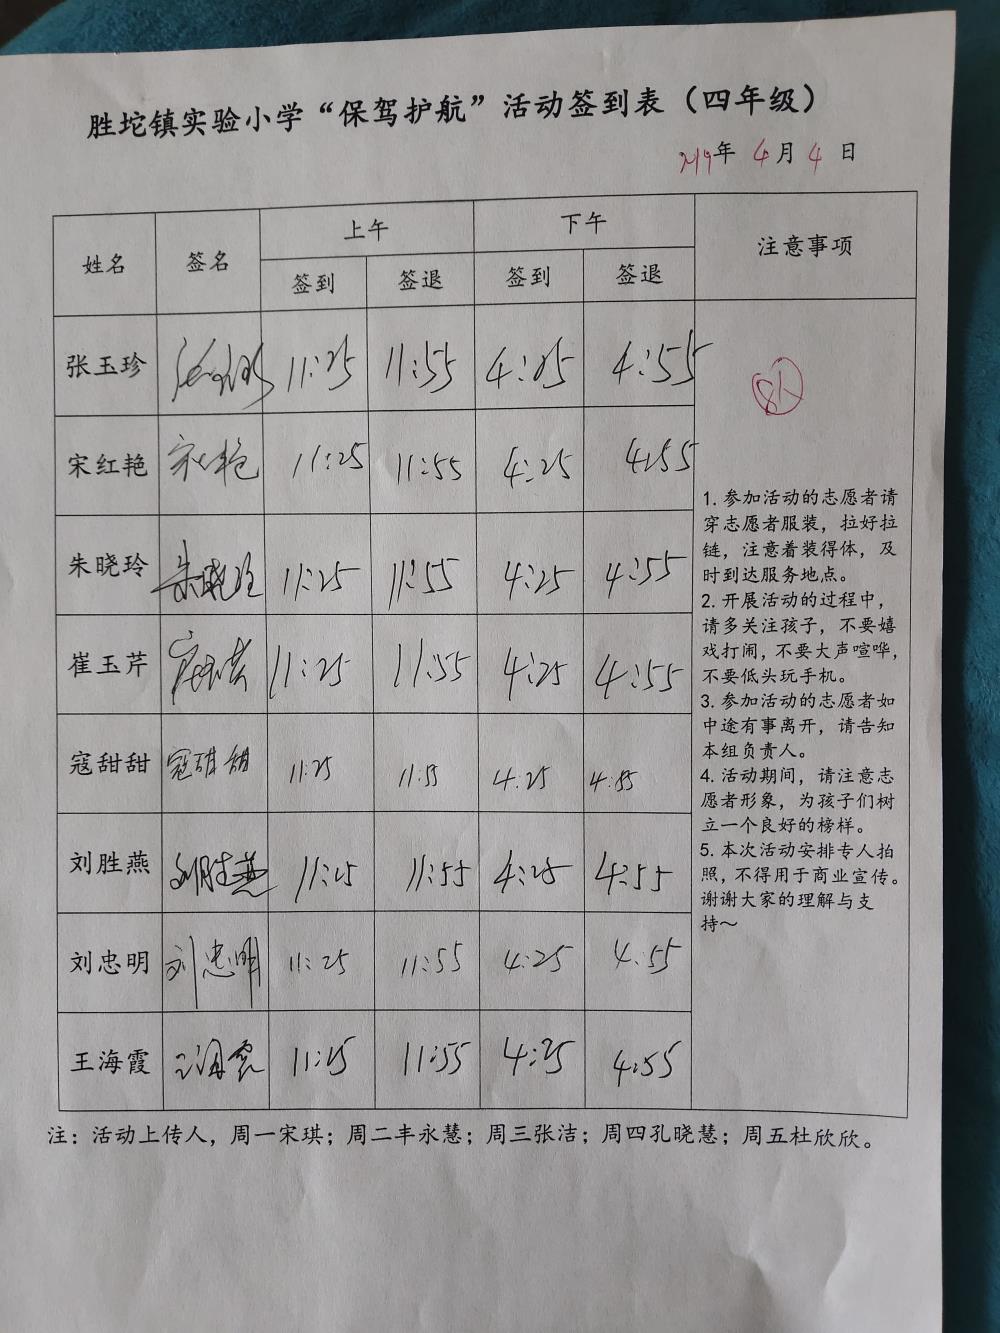 胜坨镇实验小学“保驾护航”活动签到表（四年级）
2119年 4月 4日
姓名 签名 上午 下午 注意事项
签到 签退 签到 签退
张玉珍 11:25 11:55 4:25 4:55
8人
宋红艳 宋红艳 11:25 11:55 4:25 4:55
朱晓玲 朱晓玲 11:25 11:55 4:25 4:55
崔玉芹 11:25 11:55 4:25 4:55
寇甜甜 寇甜甜 11:25 11:55 4:25 4:55
刘胜燕 刘胜燕 11:25 11:55 4:25 4:55
刘忠明 刘忠明 11:25 11:55 4:25 4:55
王海霞 王海霞 11:25 11:55 4:25 4:55
1. 参加活动的志愿者请
穿志愿者服装，拉好拉
链，注意着装得体，及
时到达服务地点。
2. 开展活动的过程中，
请多关注孩子，不要嬉
戏打闹，不要大声喧哗，
不要低头玩手机。
3. 参加活动的志愿者如
中途有事离开，请告知
本组负责人。
4. 活动期间，请注意志
愿者形象，为孩子们树
立一个良好的榜样。
5. 本次活动安排专人拍
照，不得用于商业宣传。
谢谢大家的理解与支
持～
注：活动上传人，周一宋琪；周二丰永慧；周三张洁；周四孔晓慧；周五杜欣欣。